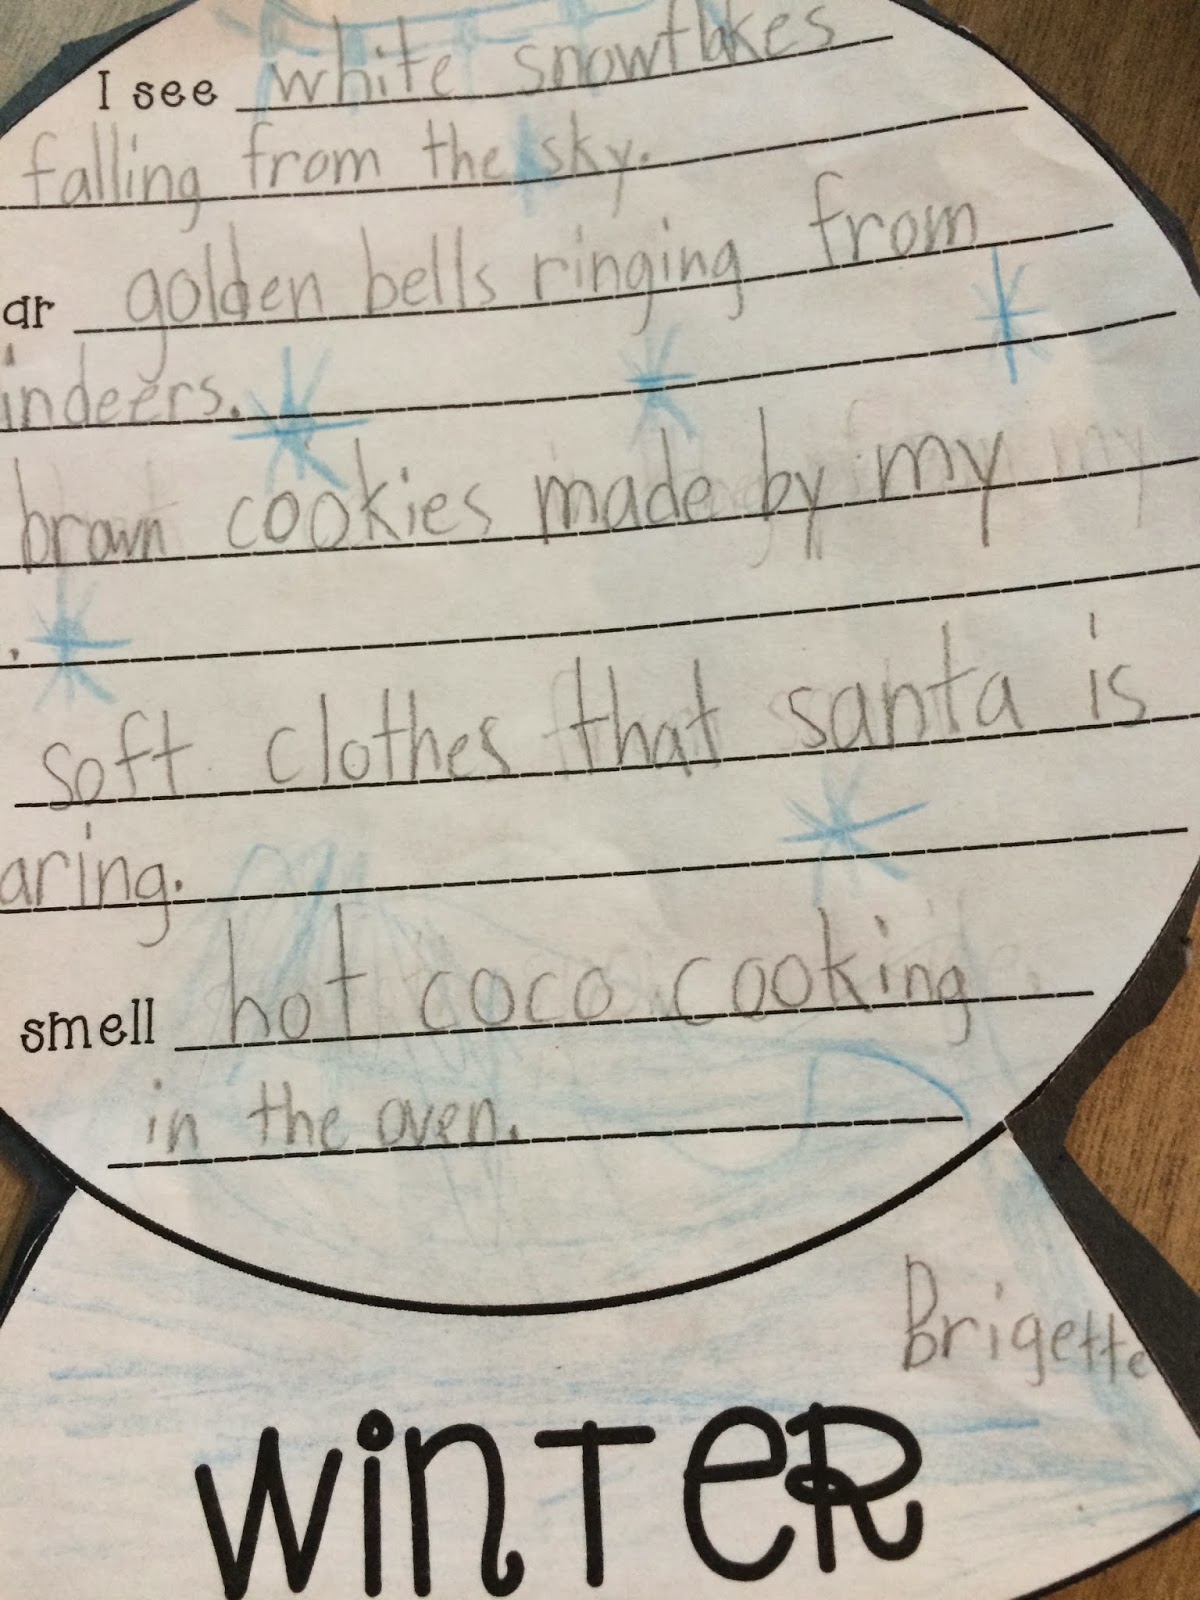 I see white snowflakes
falling from the sky.
ar golden bells ringing from
indeers.
brown cookies made by my
.
soft clothes that santa is
aring.
smell hot coco cooking
in the oven.
Brigette
WinTeR